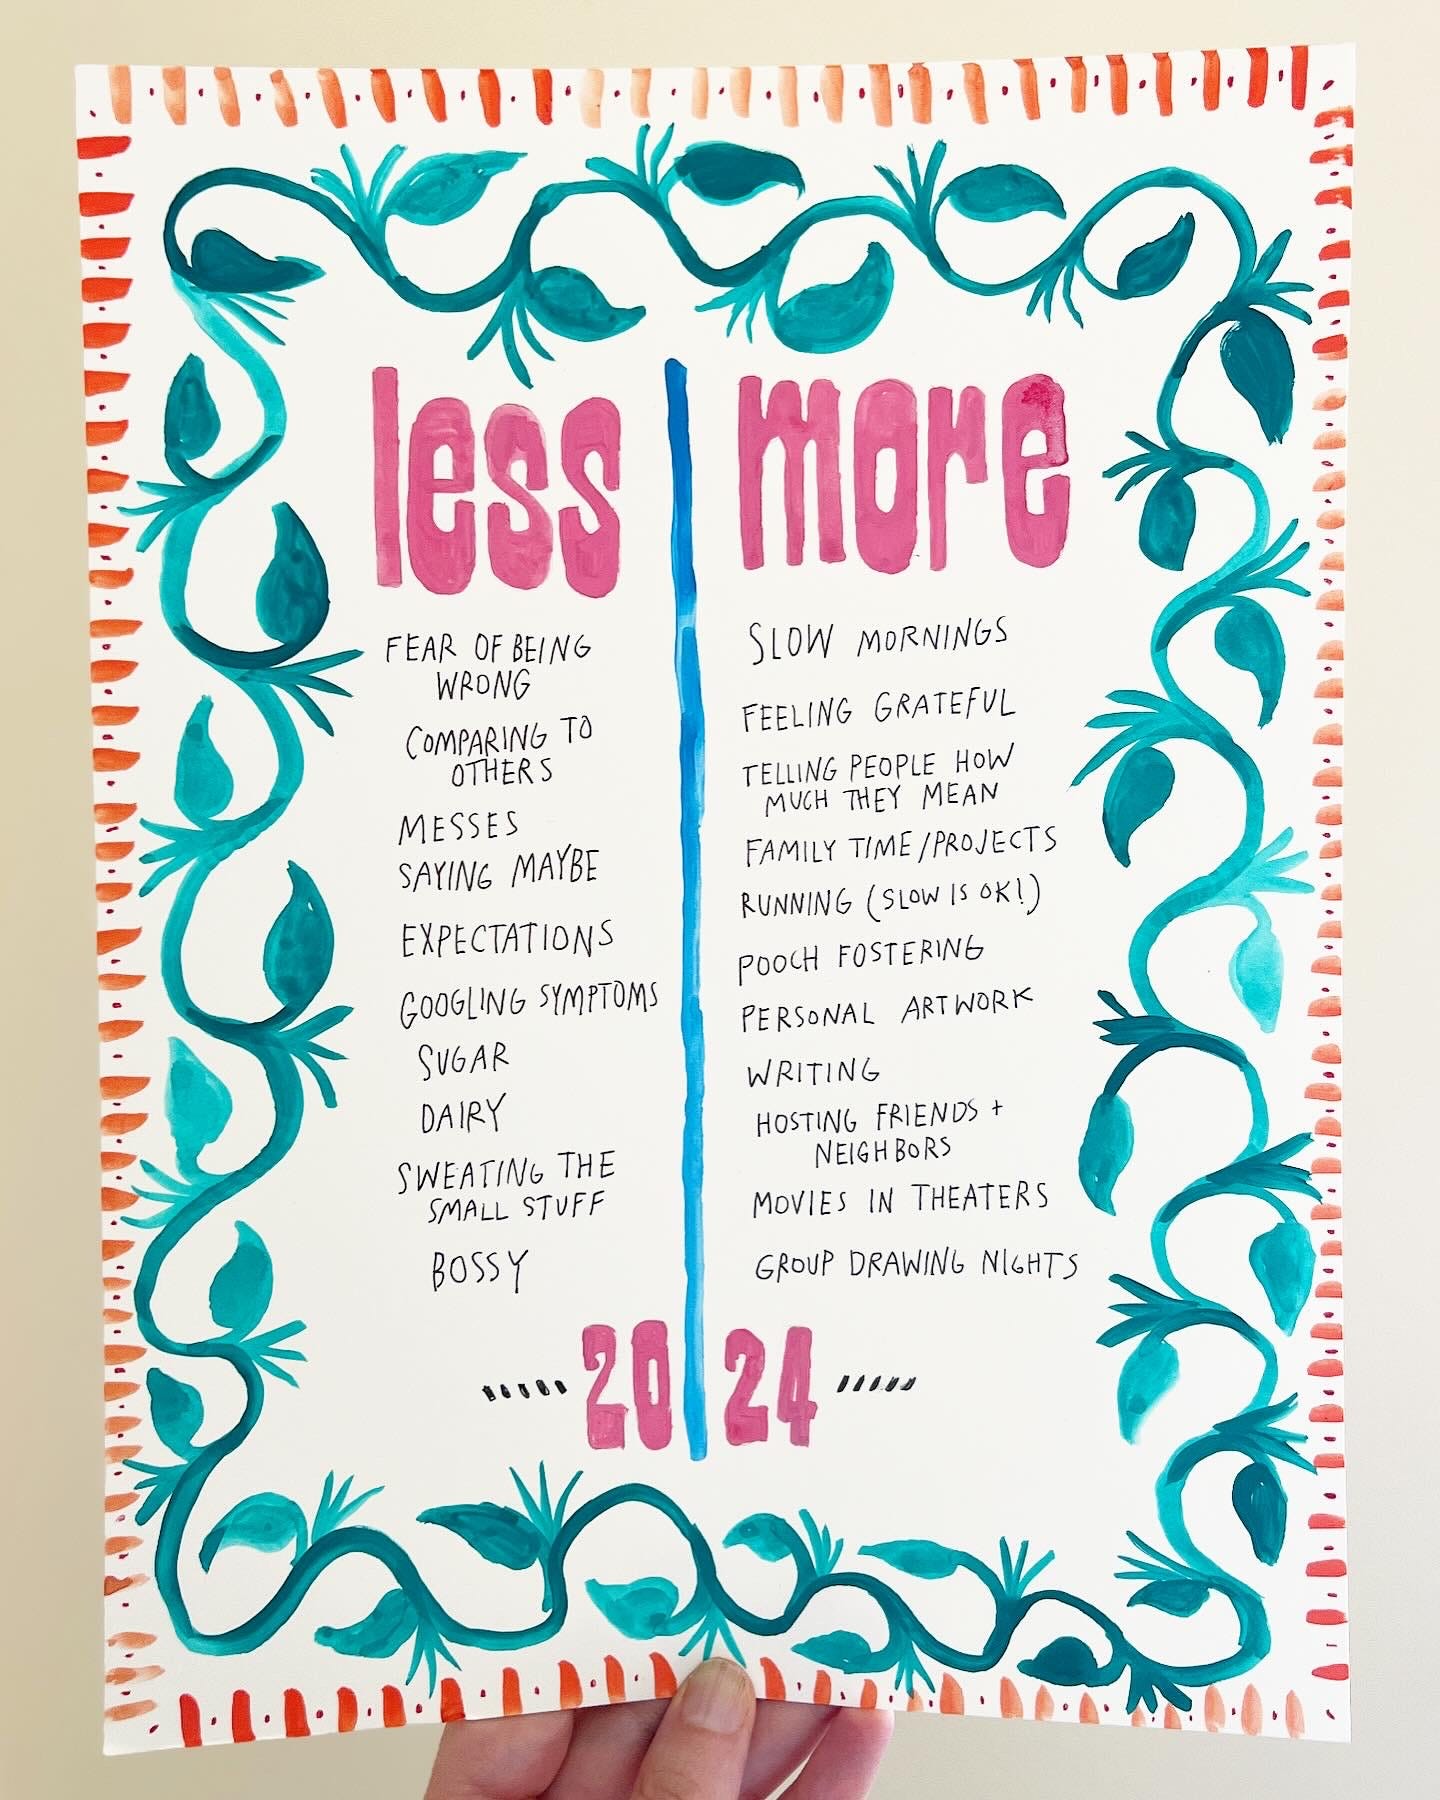 less
FEAR OF BEING
WRONG
COMPARING TO
OTHERS
MESSES
SAYING MAYBE
EXPECTATIONS
GOOGLING SYMPTOMS
SUGAR
DAIRY
SWEATING THE
SMALL STUFF
BOSSY
more
SLOW MORNINGS
FEELING GRATEFUL
TELLING PEOPLE HOW
MUCH THEY MEAN
FAMILY TIME/PROJECTS
RUNNING (SLOW IS OK!)
POOCH FOSTERING
PERSONAL ARTWORK
WRITING
HOSTING FRIENDS +
NEIGHBORS
MOVIES IN THEATERS
GROUP DRAWING NIGHTS
2024